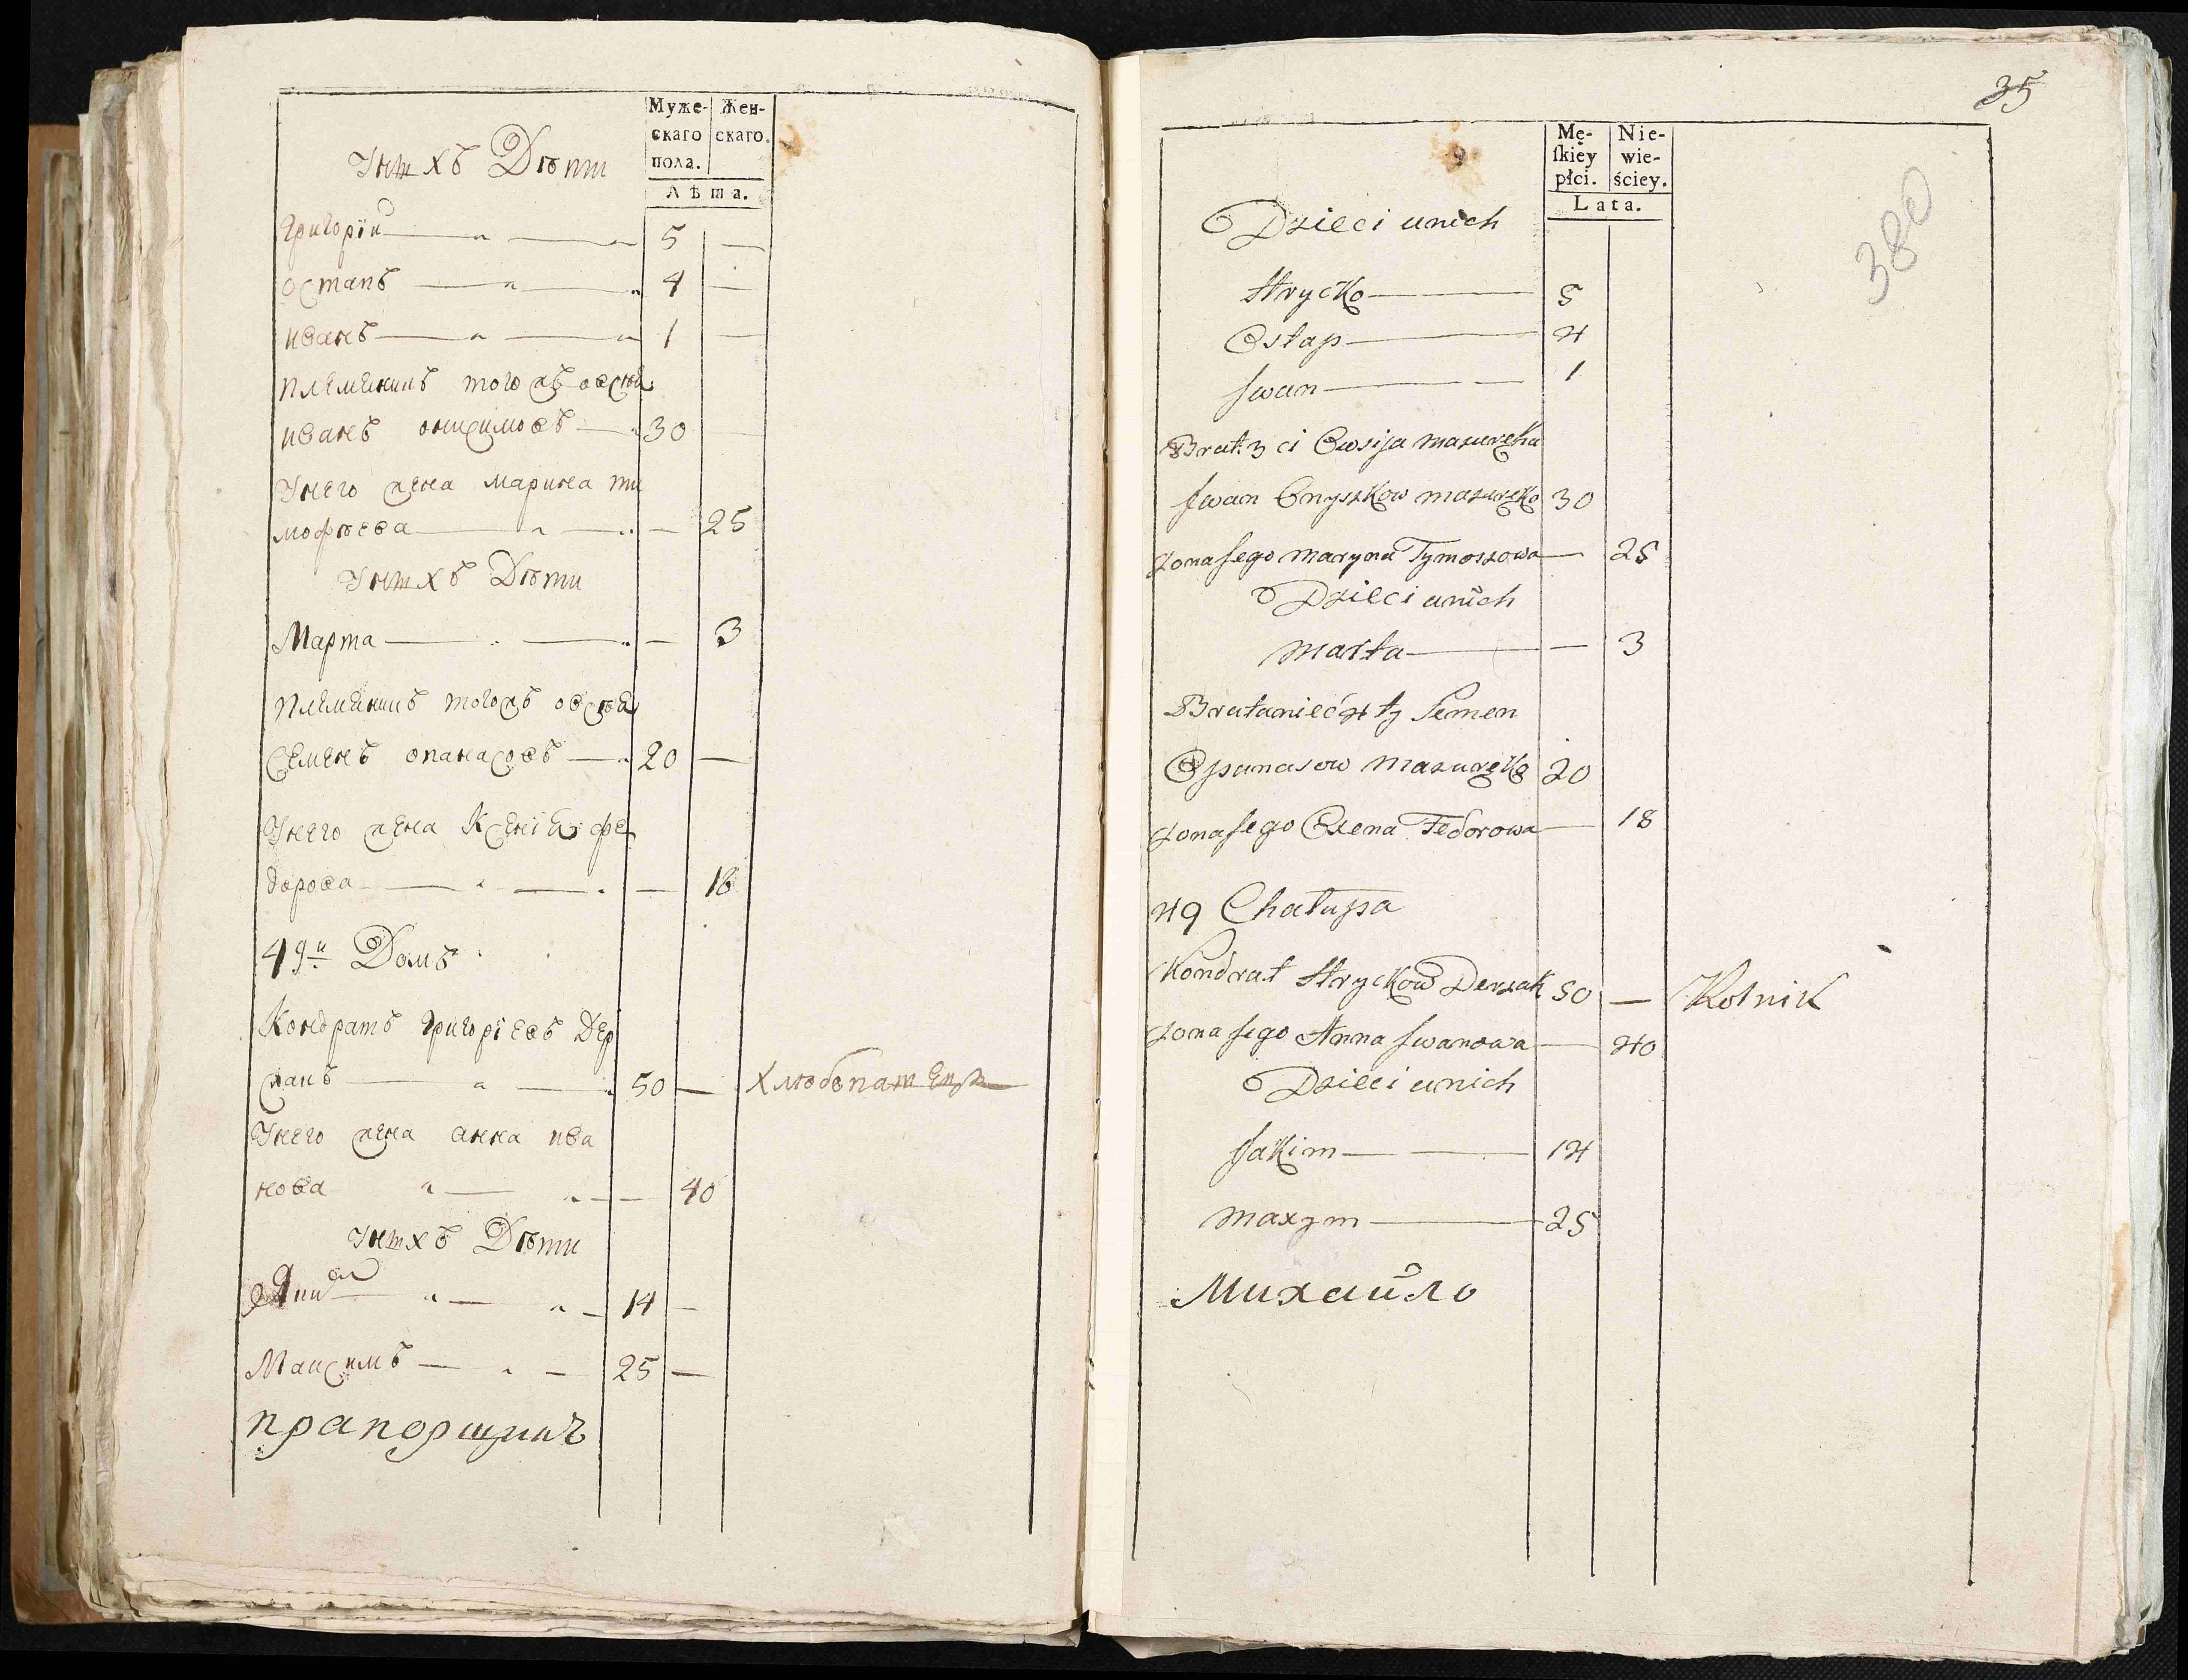 Муже-
скаго
пола.
Жен-
скаго.
Лѣта.
У нихъ Дѣти
Григорїй 5 —
остапъ 4 —
иванъ 1 —
племеникъ тогожъ овсѣя
иванъ онисимовъ 30 —
У него жена марина ти
мофѣева — 25
У нихъ Дѣти
Марта — 3
племеникъ тогожъ овсѣя
Семенъ опанасовъ 20 —
У него жена Ксенїя фе
дорова — 18
49й Домъ
Кондратъ григорїевъ Дер
жакъ 50 — хлѣбопашецъ
У него жена анна ива
нова — 40
У нихъ Дѣти
Яким 14 —
Максимъ 25 —
прапорщикъ
35
380
Mę-
ſkiéy
płci.
Nie-
wie-
ściey.
Lata.
Dzieci unich
Hrycko 5
Ostap 4
Jwan 1
Brat: 3ci Owsija mazureka
Jwan Onyszkow mazureko 30
zona Jego maryna Tymoszowa — 25
Dzieci unich
marta — 3
Brataniec 4ty Semen
Opanasow mazureko 20
zona Jego Oxena Fedorowa — 18
49 Chałupa
Kondrat Hryckow Derzak 50 — Rolnik
zona Jego Anna Jwanowa — 40
Dzieci unich
Jakim 14
maxym 25
Михайло